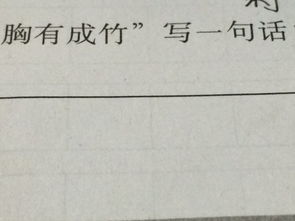 胸有成竹”写一句话